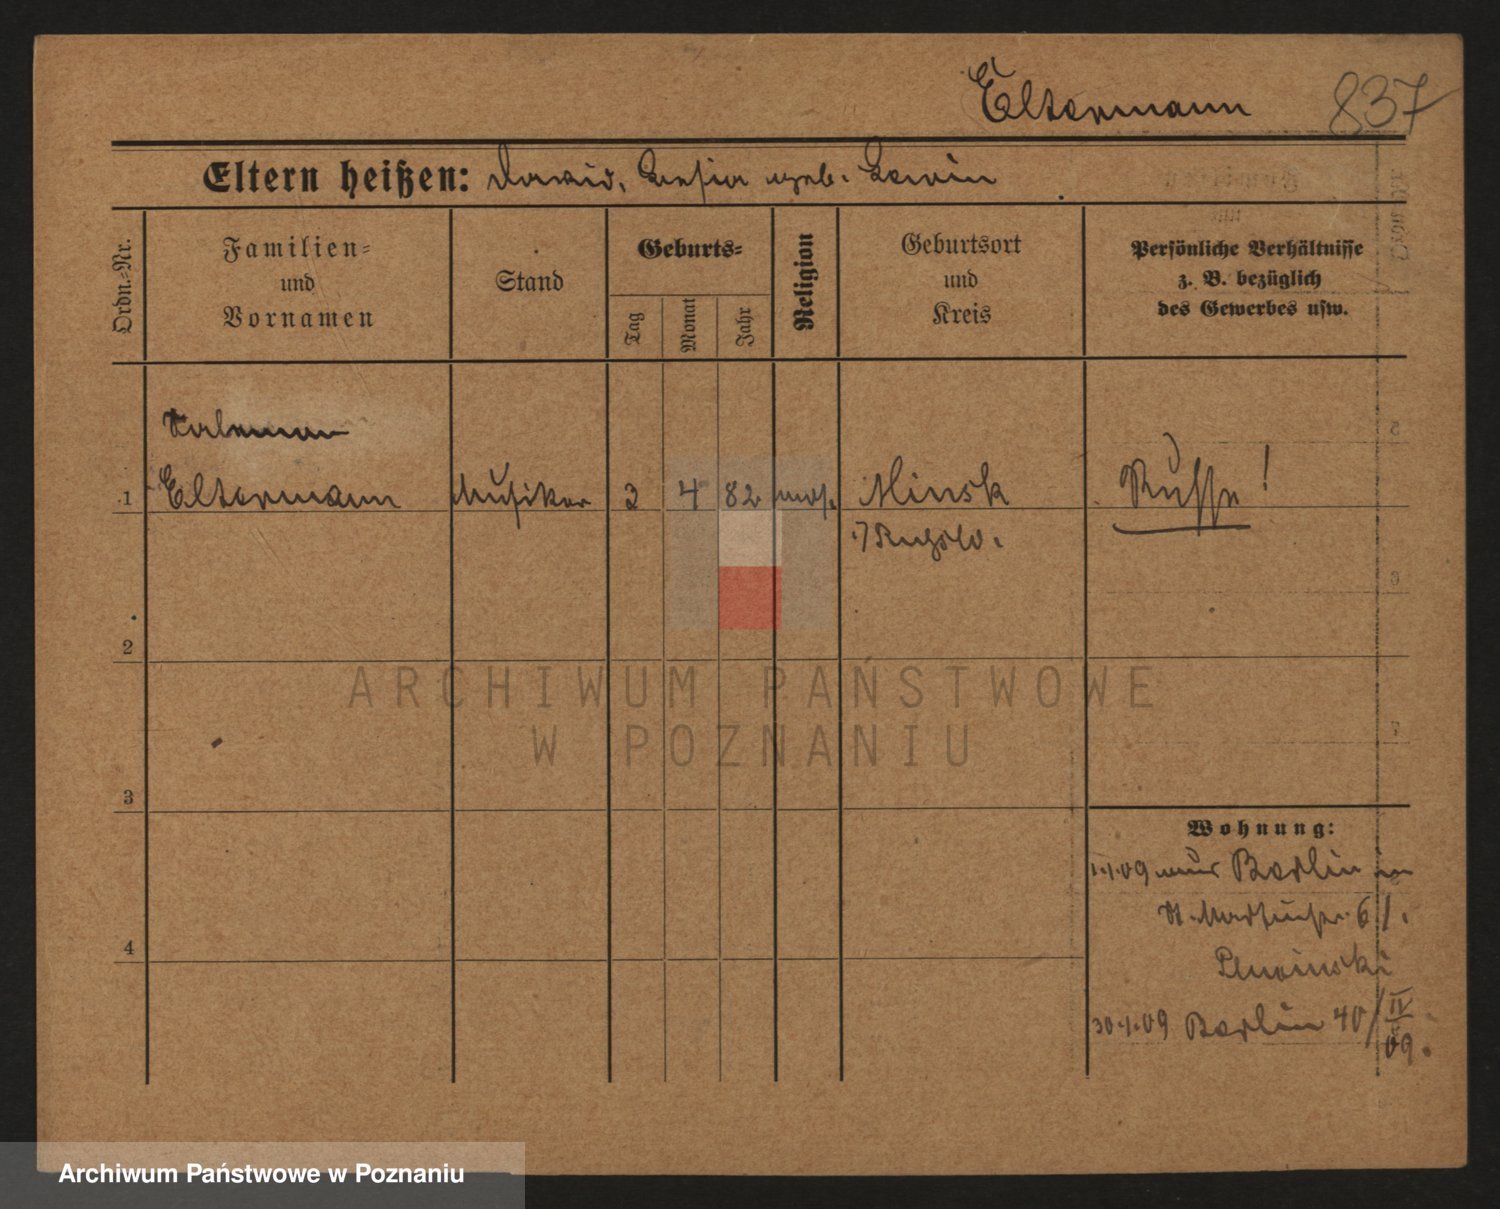 Eltermann 837
Eltern heißen: David, geb. Lewin
Ordn.-Nr.
Familien-
und
Vornamen
Stand
Geburts-
Tag
Monat
Jahr
Religion
Geburtsort
und
Kreis
Persönliche Verhältnisse
z. B. bezüglich
des Gewerbes usw.
1 Eltermann Musiker 3 4 82 mos. Minsk Russe!
2
3
4
Wohnung:
1.1.09 aus Berlin in
St. Martinstr. 61.
30.1.09 Berlin 40/IV
09.
ARCHIWUM PAŃSTWOWE
W POZNANIU
Archiwum Państwowe w Poznaniu